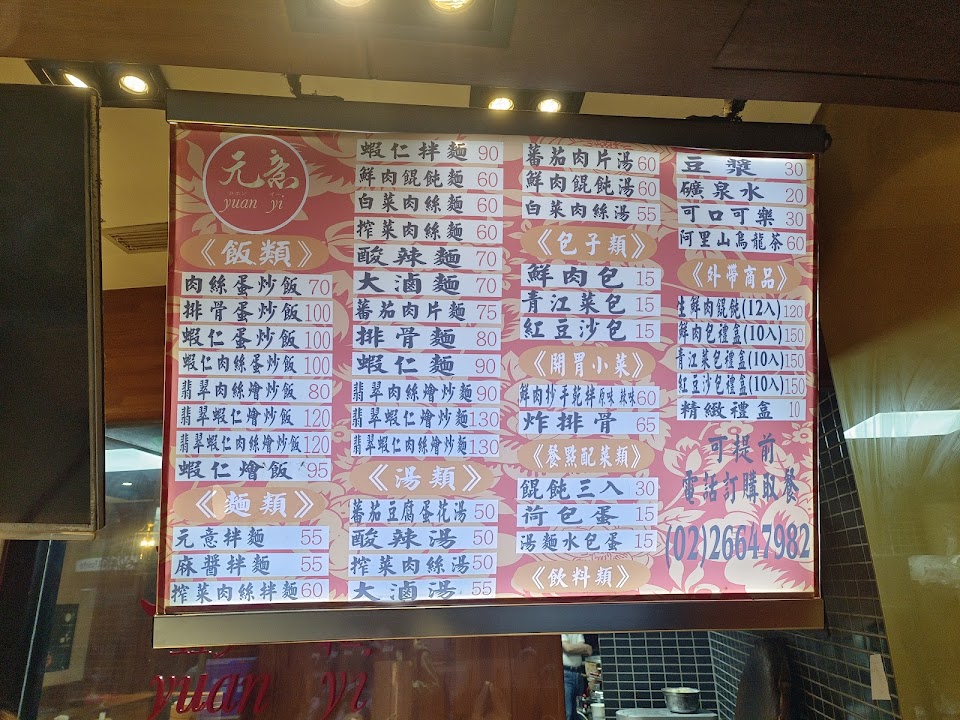 元意
yuan yi
《飯類》
肉絲蛋炒飯 70
排骨蛋炒飯 100
蝦仁蛋炒飯 100
蝦仁肉絲蛋炒飯 100
翡翠肉絲燴炒飯 80
翡翠蝦仁燴炒飯 120
翡翠蝦仁肉絲燴炒飯 120
蝦仁燴飯 95
《麵類》
元意拌麵 55
麻醬拌麵 55
搾菜肉絲拌麵 60
蝦仁拌麵 90
鮮肉餛飩麵 60
白菜肉絲麵 60
搾菜肉絲麵 60
酸辣麵 70
大滷麵 70
蕃茄肉片麵 75
排骨麵 80
蝦仁麵 90
翡翠肉絲燴炒麵 90
翡翠蝦仁燴炒麵 130
翡翠蝦仁肉絲燴炒麵 130
《湯類》
蕃茄豆腐蛋花湯 50
酸辣湯 50
搾菜肉絲湯 50
大滷湯 55
蕃茄肉片湯 60
鮮肉餛飩湯 60
白菜肉絲湯 55
《包子類》
鮮肉包 15
青江菜包 15
紅豆沙包 15
《開胃小菜》
鮮肉抄手乾拌 原味 辣味 60
炸排骨 65
《餐點配菜類》
餛飩三入 30
荷包蛋 15
湯麵水包蛋 15
《飲料類》
豆漿 30
礦泉水 20
可口可樂 30
阿里山烏龍茶 60
《外帶商品》
生鮮肉餛飩(12入) 120
鮮肉包禮盒(10入) 150
青江菜包禮盒(10入) 150
紅豆沙包禮盒(10入) 150
精緻禮盒 10
可提前
電話訂購取餐
(02)26647982
yuan yi